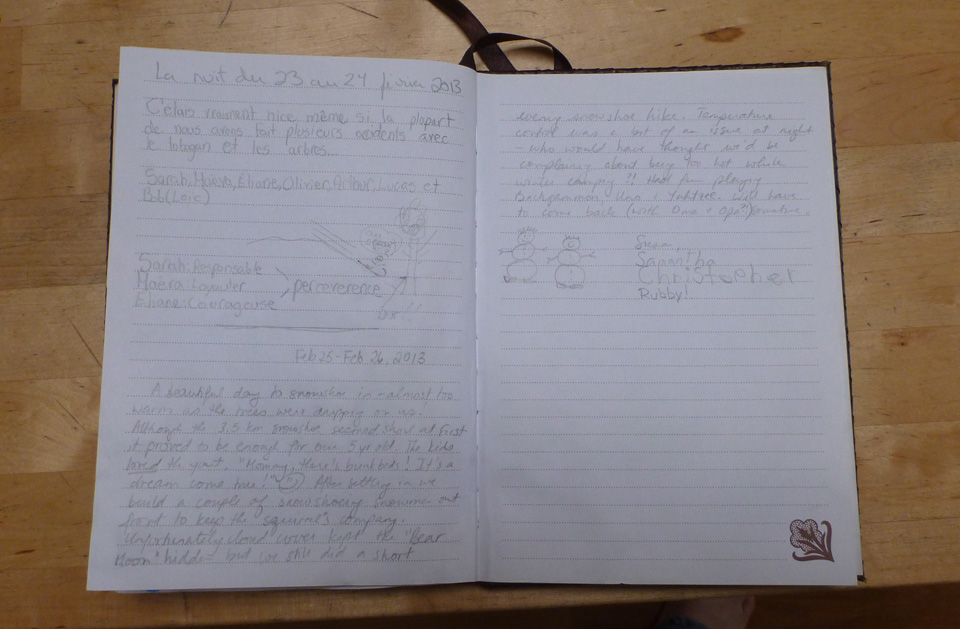 La nuit du 23 au 24 février 2013
C'étais vraiment nice même si la plupart
de nous avons fait plusieurs accidents avec
le tobogan et les arbres...
Sarah, Maëva, Éliane, Olivier, Arthur, Lucas et
Bob(Loïc)
Sarah: Responsable
Maëva:
Éliane: Courageuse
perceverence
Feb 25 - Feb 26, 2013
A beautiful day to snowshoe in - almost too
warm as the trees were dripping on us.
Although the 1.5 km snowshoe seemed short at first
it proved to be enough for our 5 yr old. The kids
loved the yurt, "Mommy, there's bunk beds! It's a
dream come true!" After settling in we
build a couple of snowshoeing snowmen out
front to keep the "squirrels" company.
Unfortunately cloud cover kept the "Bear
Moon" hidden - but we still did a short
evening snowshoe hike. Temperature
control was a bit of an issue at night
- who would have thought we'd be
complaining about being too hot while
winter camping?! Had fun playing
Backgammon, Uno + Yahtzee. Will have
to come back (with Oma + Opa?!) sometime.
Susan,
Samantha
Christopher
Rubby!